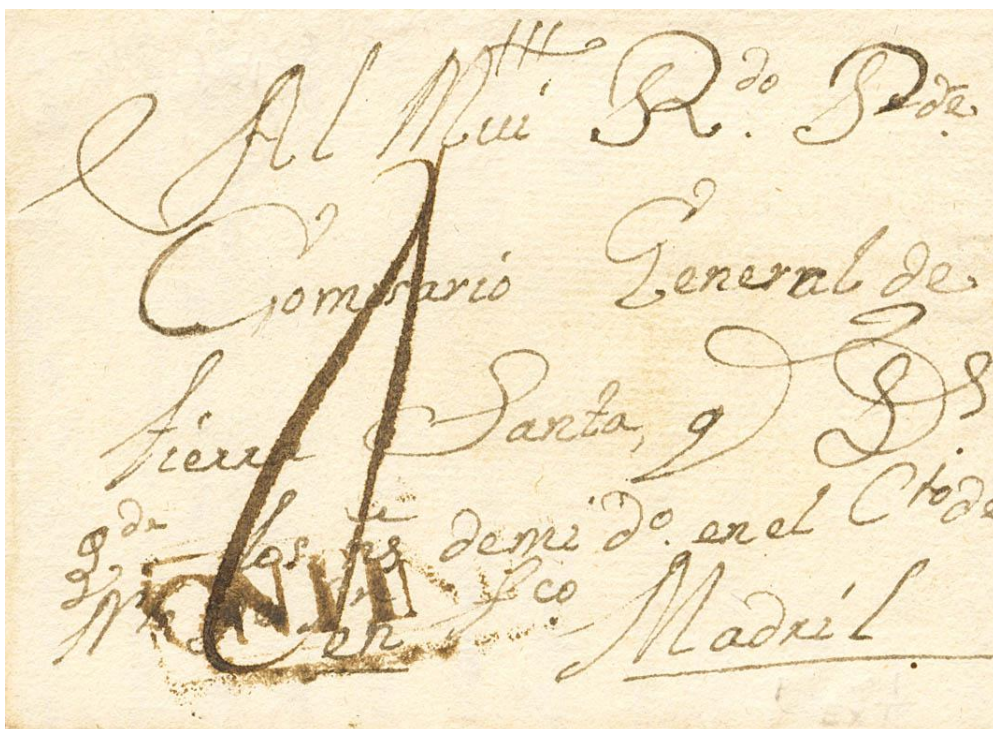 Al Mui R.do P.de
Comisario General de
tierra Santa, q D.s
g.de los a.s de mi d.o en el C.to de
N. S.n Fco
en Madril